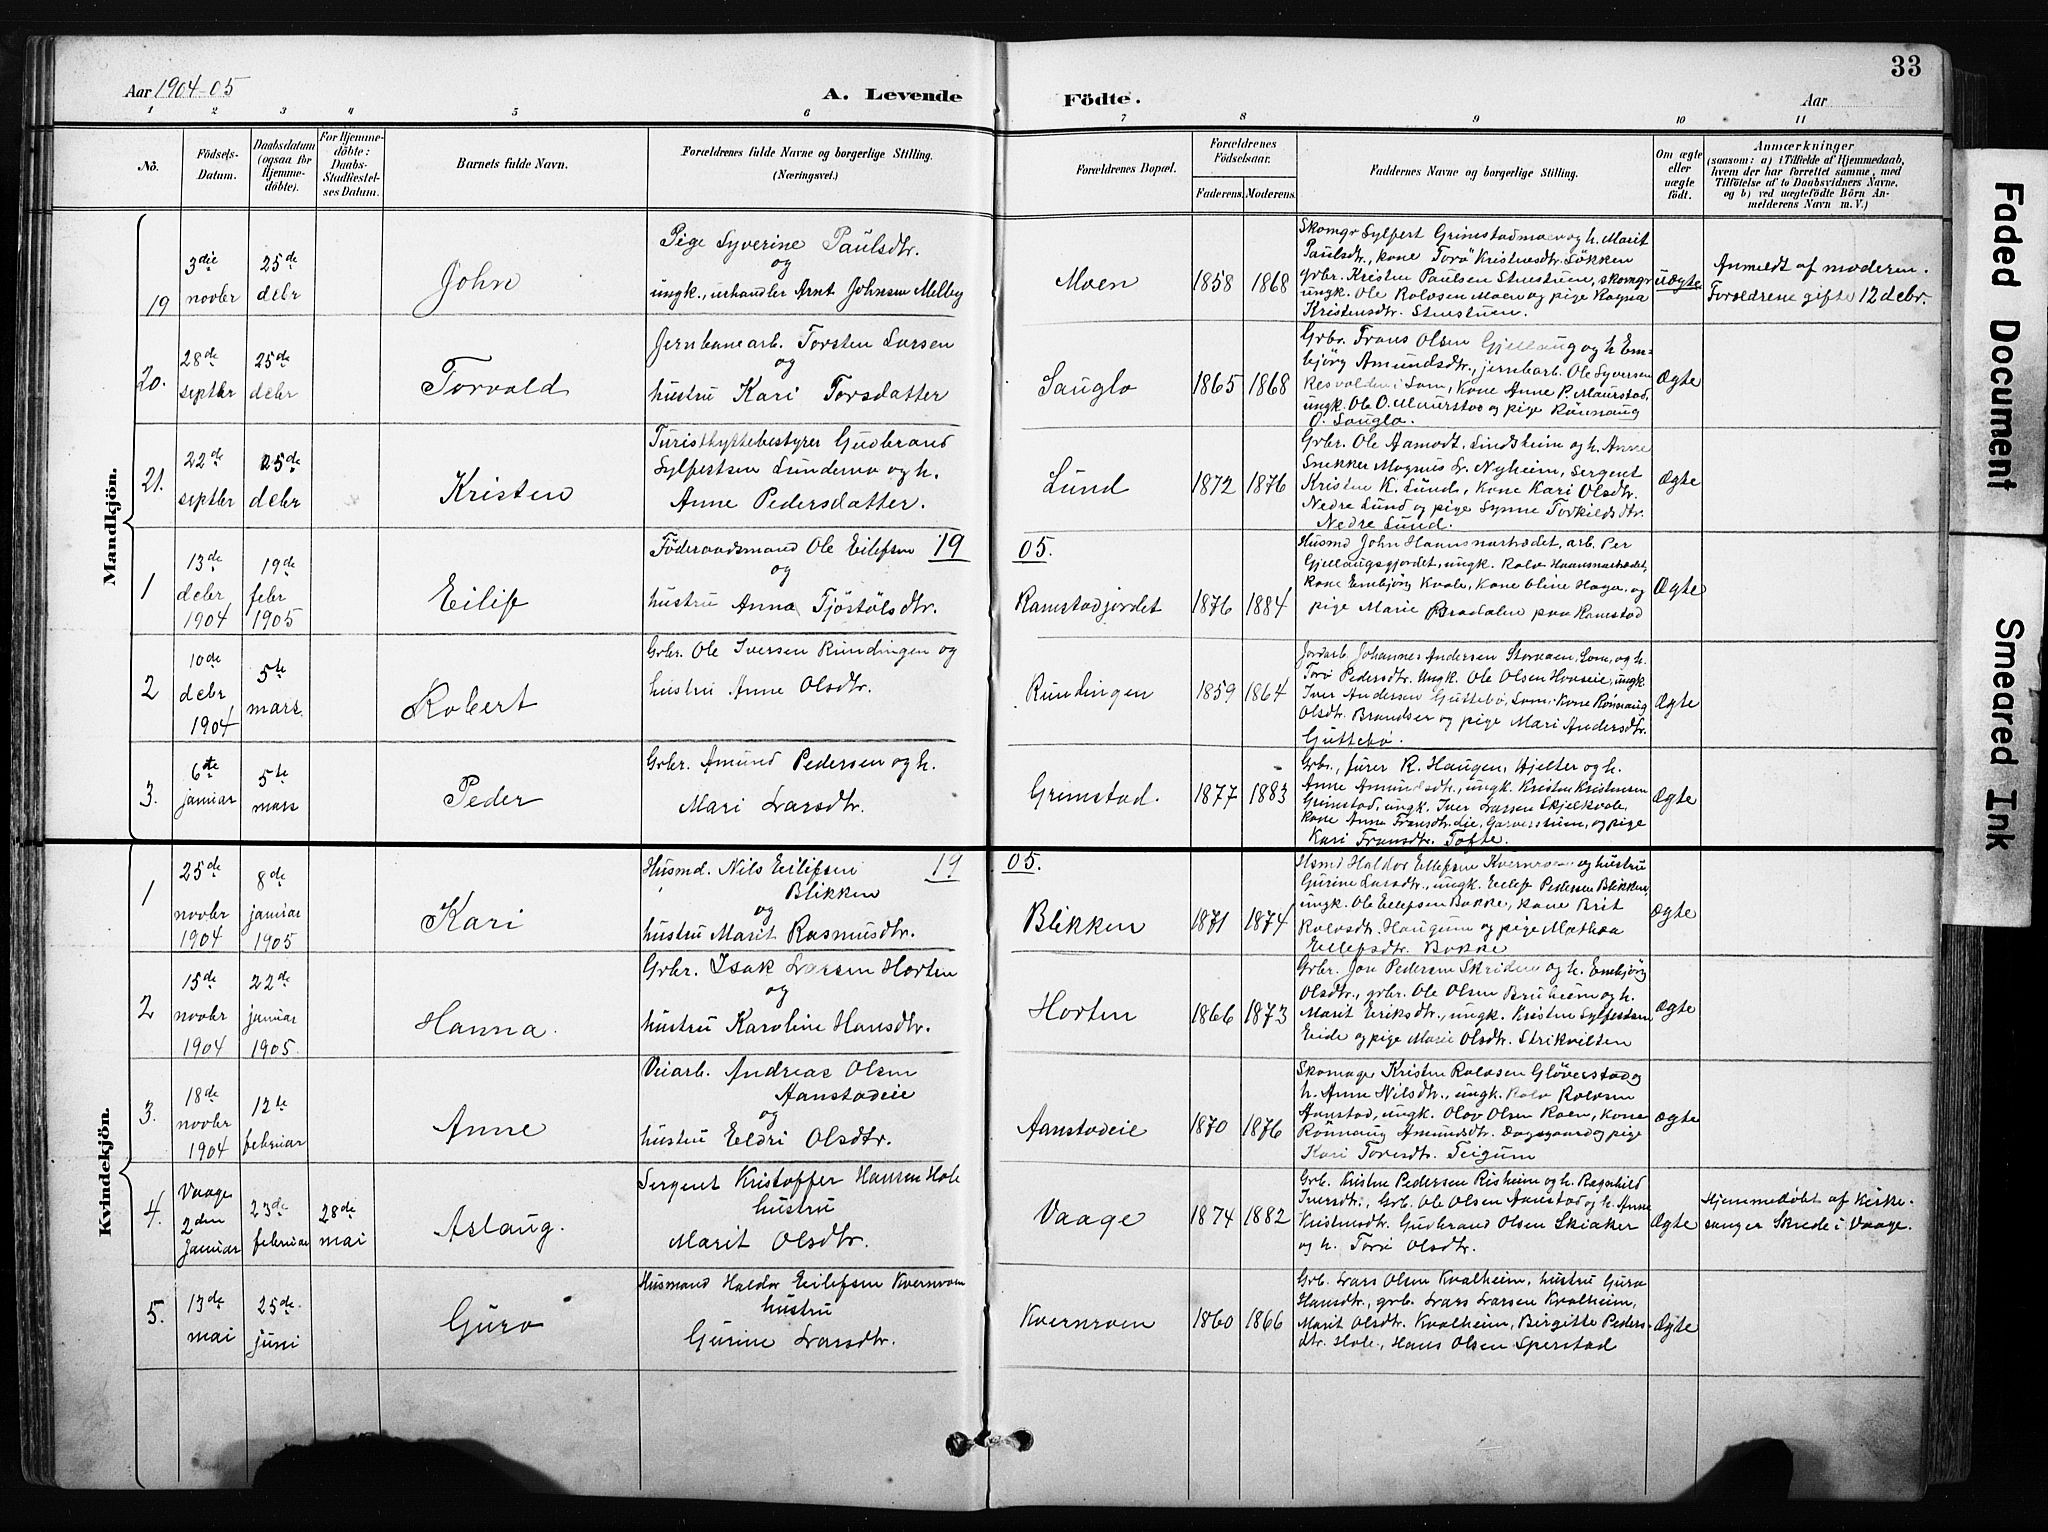 33
Aar 1904-05
A. Levende
Födte.
Aar
1 2 3 4 5 6 7 8 9 10 11
No.
Födsels-
Datum.
Daabsdatum
(ogsaa for
Hjemme-
døbte).
For Hjemme-
döbte:
Daabs-
Stadfæstel-
ses Datum.
Barnets fulde Navn.
Forældrenes fulde Navne og borgerlige Stilling.
(Næringsvei.)
Forældrenes Bopæl.
Forældrenes
Födselsaar.
Faderens. Moderens.
Faddernes Navne og borgerlige Stilling.
Om ægte
eller
uægte
födt.
Anmærkninger
(saasom: a) i Tilfælde af Hjemmedaab,
hvem der har forrettet samme, med
Tilföielse af to Daabsvidners Navne,
og b) ved uægtefödte Börn An-
melderens Navn m. V.)
Mandkjön.
19
3die
novbr
25de
debr
John
Pige Syverine Paulsdtr.
og
ungk., urhandler Arnt Johnsen Melby
Moen
1858 1868
Skomgr Sylfert Grimstadmoen og h. Marit
Paulsdtr., kone Torö Kristensdtr. Sökken
grbr. Kristen Paulsen Stenstuen, skomgr
ungk. Ole Rolvsen Moen og pige Ragna
Kristensdtr. Stenstuen.
uægte
Anmeldt af moderen.
Forældrene gifte 12 debr.
20.
28de
septbr
25de
debr
Torvald
Jernbanearb. Torsten Larsen
og
hustru Kari Torsdatter
Sauglo
1865 1868
Grbr. Frans Olsen Gjellaug og h. Em-
björg Amundsdtr., jernbarb. Ole Syversen
Resvolden i Lom, Kone Anne P. Maurstad,
ungk. Ole O. Maurstad og pige Rönnaug
O. Sauglo.
Ægte
21.
22de
septbr
25de
debr
Kristen
Turisthyttebestyrer Gudbrand
Sylfestsen Lundemo og h.
Anne Pedersdatter.
Lund
1872 1876
Grbr. Ole Aamodt. Lindsheim og h. Anne
Snekker Magnus L. Nyheim, sergent
Kristen K. Lund, kone Kari Olsdtr.
Nedre Lund og pige Synne Torkildsdtr.
Nedre Lund.
Ægte
19 05.
1
13de
debr
1904
19de
febr
1905
Eilif
Föderaadsmand Ole Eilefsen
og
hustru Anna Tjöstölsdtr.
Ramstadjordet
1876 1884
Husmd John Haansnarhædet, arb. Per
Gjellaugsgjordet, ungk. Rolv Haansnarhædet,
kone Embjörg Kvale, kone Eline Haga, og
pige Marie Bradalen paa Ramstad
Ægte
2
10de
debr
1904
5te
mars
Robert
Grbr. Ole Iversen Rundingen og
hustru Anne Olsdtr.
Rundingen
1859 1864
Jordarb. Johannes Andersen Storøien, Lom, og h.
Torö Pedersdtr. Ungk. Ole Olsen Hovseie, ungk.
Iver Andersen Guttebö, Lom, Kone Rønnaug
Olsdtr. Brandser og pige Mari Andersdtr.
Guttebö.
Ægte
3.
6te
januar
5te
mars
Peder
Grbr. Amund Pedersen og h.
Mari Larsdtr.
Grimstad.
1877 1883
Grbr., furer R. Haugen, Hjelter og h.
Anne Amundsdtr., ungk. Kristen Kristensen
Grimstad, ungk. Iver Larsen Skjelkvale,
kone Anne Fransdtr. Lie, Garverstuen, og pige
Kari Fransdtr. Tofte.
Ægte
Kvindekjön.
19 05.
1
25de
novbr
1904
8de
januar
1905
Kari
Husmd. Nils Eilefsen
Blikken
og
hustru Marit Rasmusdtr.
Blikken
1871 1874
Husmd Haldor Eilefsen Kvernroen og hustru
Gurine Larsdtr., ungk. Eilef Pedersen Blikken,
ungk. Ole Eilefsen Bakke, kone Brit
Rolvsdtr. Haugum og pige Mathea
Eilefsdtr. Bakke
Ægte
2
15de
novbr
1904
22de
januar
1905.
Hanna.
Grbr. Isak Larsen Horten
og
hustru Karoline Hansdtr.
Horten
1866 1873
Grbr. Jon Pedersen Skriden og h. Embjörg
Olsdtr., grbr. Ole Olsen Bruheim og h.
Marit Eriksdtr., ungk. Kristen Sylfestsen
Eide og pige Marie Olsdtr. Strikvilten
Ægte
3.
18de
novbr
1904
12te
februar
Anne
Veiarb. Andreas Olsen
Aanstadeie
og
hustru Eldri Olsdtr.
Aanstadeie
1870 1876
Skomager Kristen Rolvsen Gløverstad og
h. Anne Nilsdtr., ungk. Rolv Rolvsen
Aanstad, ungk. Olav Olsen Roen, Kone
Rönnaug Amundsdtr. Dagsgaard og pige
Kari Toresdtr. Teigum
Ægte
4.
Vaage
2den
januar
23de
februar
28de
mai
Aslaug.
Sergent Kristoffer Hansen Hole
hustru
Marit Olsdtr.
Vaage
1874 1882
Grb. Kristen Pedersen Risheim og h. Ragnhild
Iversdtr., Grb. Ole Olsen Aanstad og h. Anne
Kristensdtr. Gudbrand Olsen Skiaker
og h. Torö Olsdtr.
Ægte
Hjemmedøbt af Kirke-
sanger Skrede i Vaage.
5.
13de
mai
25de
juni
Guro
Husmand Haldor Eilefsen Kvernroen
hustru
Gurine Larsdtr.
Kvernroen
1860 1866
Grb. Lars Olsen Kvalheim, hustru Guro
Hansdtr., grb. Lars Larsen Kvalheim,
Marit Olsdtr. Kvalheim, Birgitte Peders-
dtr. Hole, Hans Olsen Sperstad
Ægte
Faded Document
Smeared Ink